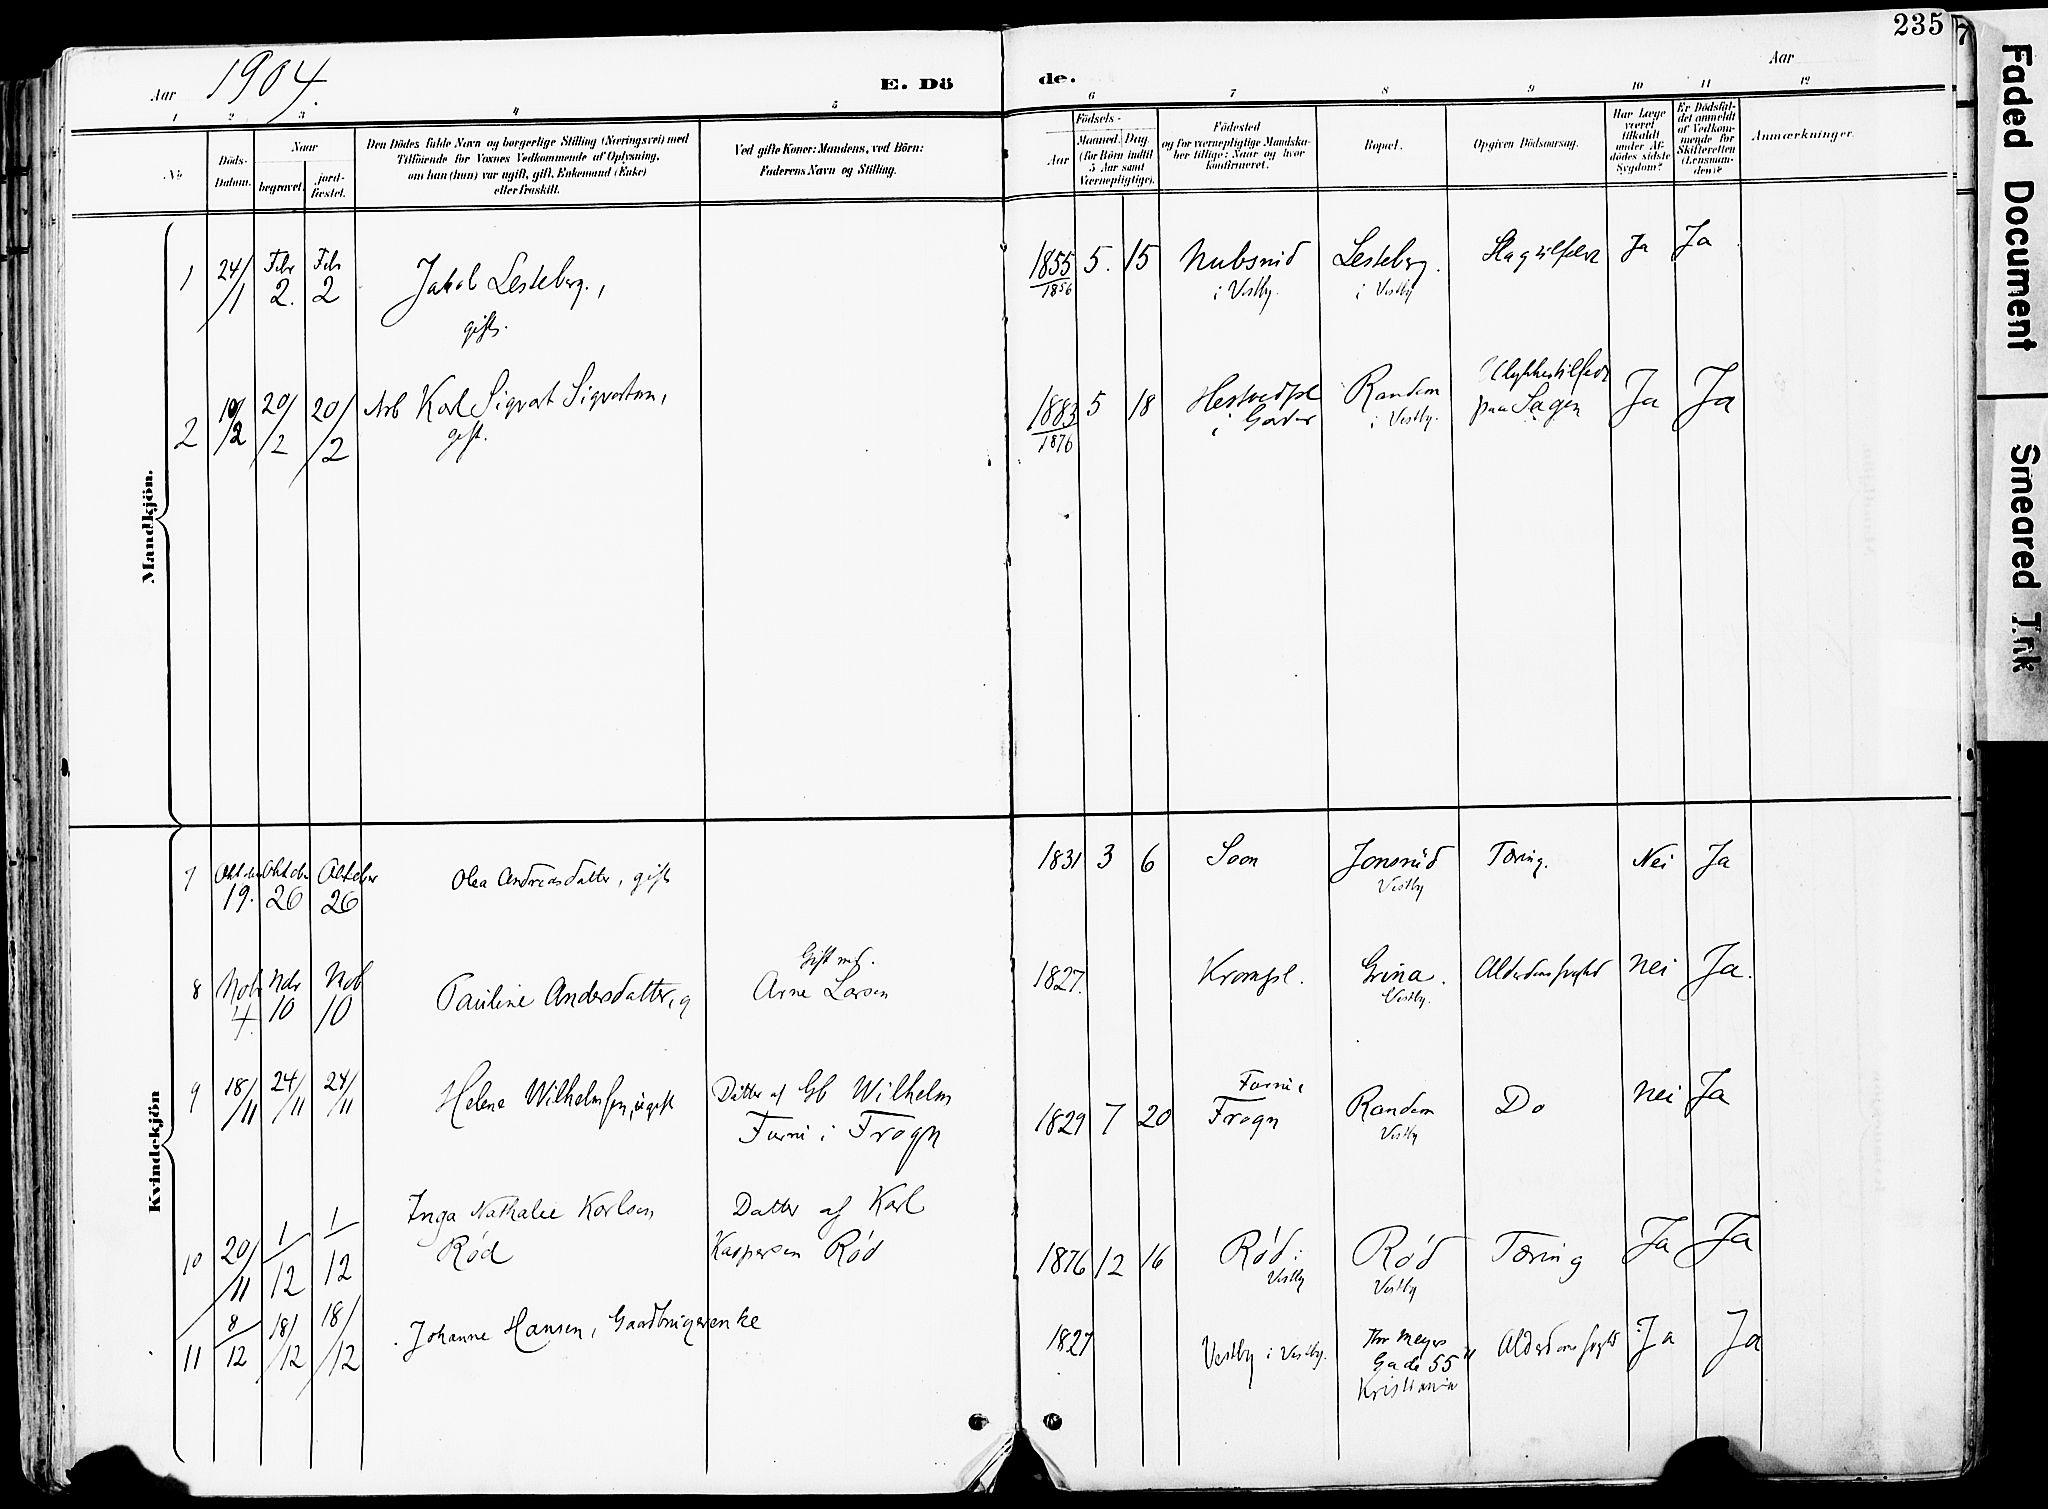 235
Aar 1904.
E. Dö
de.
Aar
1 2 3 4 5 6 7 8 9 10 11 12
No
Döds-
Datum.
Naar
begravet.
jord-
fæstet.
Den Dödes fulde Navn og borgerlige Stilling (Næringsvei) med
Tilföiende for Voxnes Vedkommende af Oplysning,
om han (hun) var ugift, gift, Enkemand (Enke)
eller fraskilt.
Ved gifte Koner: Mandens, ved Börn:
Faderens Navn og Stilling.
Födsels-
Aar
Maaned.
Dag.
(for Börn indtil
5 Aar samt
Værnepligtige).
Födested
og for værnepligtige Mandska-
ber tillige: Naar og hvor
konfirmeret.
Bopæl.
Opgiven Dödsaarsag.
Har Læge
været
tilkaldt
under Af-
dödes sidste
Sygdom?
Er Dödsfal-
det anmeldt
af Vedkom-
mende for
Skifteretten
(Lensman-
den)?
Anmærkninger.
Mandkjön.
1 24/1 Febr 2. Feb 2 Jakob Lesteberg, 1855 5. 15 i Vestby. Lesteberg. Slagtilfælde Ja Ja
1856 i Vestby
gift.
2 19/2 20/2 20/2 Arb Karl Sigvart Sigvartsen, 1883 5 18 Hestvedpl Randem Ulykkestilfælde Ja Ja
gift. 1876 i Gaarder i Vestby. paa Sagen
Kvindekjön
7 Oktober 19. Oktober 26 Oktober 26 Olea Andreasdatter, gift 1831 3 6 Soon Jonsrud Tæring. Nei Ja
Vestby
Gift md.
8 Nobr 4. Nobr 10 Nob 10 Pauline Andersdatter, g Arne Larsen 1827. Krompl. Grina. Alderdomssvaghed Nei Ja.
Vestby.
9 18/11 24/11 24/11 Helene Wilhelmsen, ugift Datter af Gb Wilhelm 1829 7 20 Furu i Randem Do Nei Ja
Furu i Frogn Frogn Vestby
10 20/11 1/12 1/12 Inga Nathalie Karlsen Datter af Karl
Rød Kaspersen Rød 1876 12 16 Rød i Rød Tæring Ja Ja
Vestby Vestby
11 8/12 18/12 18/12 Johanne Hansen, Gaardbrugerenke 1827 Vestby i Vestby. Thv Meyes Alderdomssvaghed Ja Ja
Gade 55
Kristiania
Faded Document
Smeared Ink